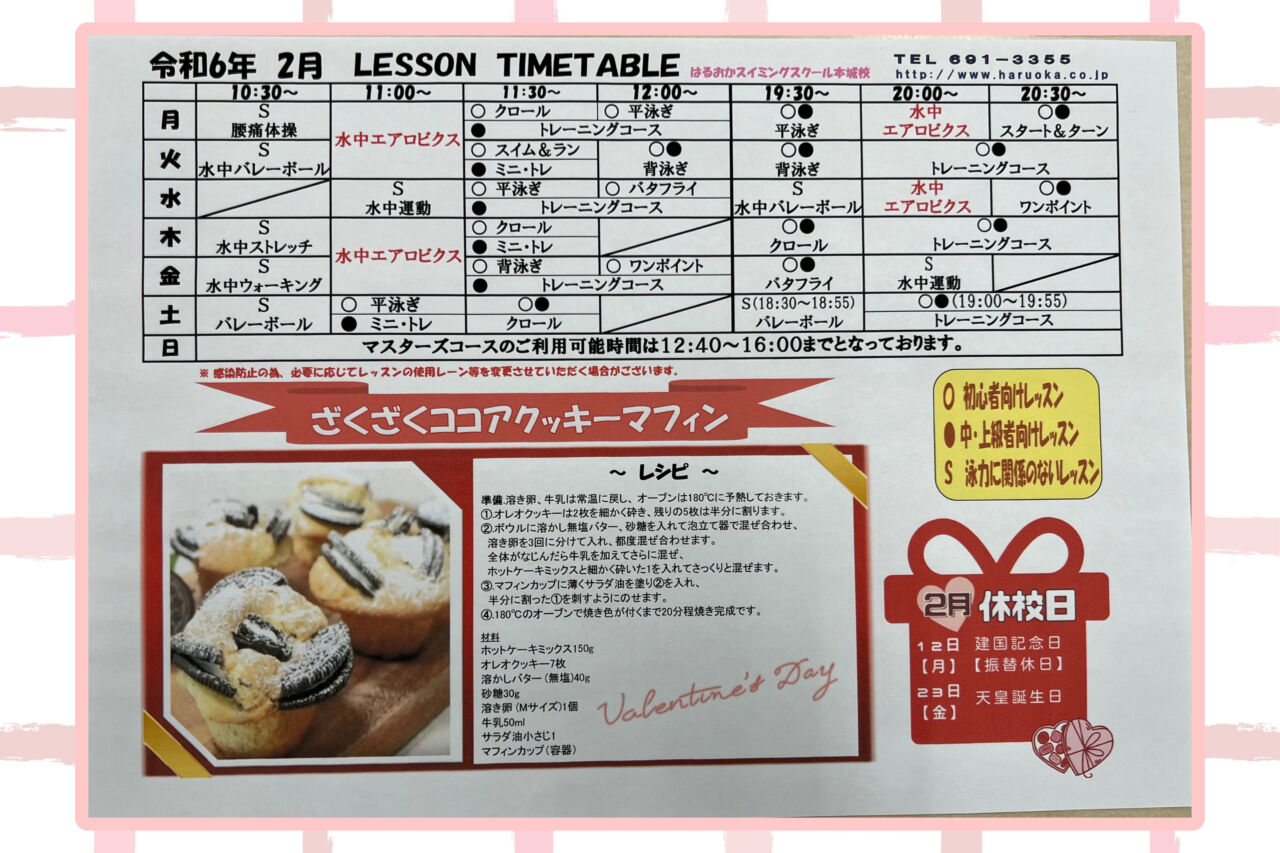 令和6年 2月 LESSON TIMETABLE はるおかスイミングスクール本城校
TEL 691-3355
http://www.haruoka.co.jp
10:30～ 11:00～ 11:30～ 12:00～ 19:30～ 20:00～ 20:30～
月 S 腰痛体操 水中エアロビクス ○ クロール ○ 平泳ぎ ● トレーニングコース ○● 平泳ぎ 水中エアロビクス ○● スタート＆ターン
火 S 水中バレーボール ○ スイム＆ラン ● ミニ・トレ ○● 背泳ぎ ○● 背泳ぎ ○● トレーニングコース
水 S 水中運動 ○ 平泳ぎ ○ バタフライ ● トレーニングコース S 水中バレーボール 水中エアロビクス ○● ワンポイント
木 S 水中ストレッチ 水中エアロビクス ○ クロール ● ミニ・トレ ○● クロール ○● トレーニングコース
金 S 水中ウォーキング ○ 背泳ぎ ○ ワンポイント ● トレーニングコース ○● バタフライ S 水中運動
土 S バレーボール ○ 平泳ぎ ● ミニ・トレ ○● クロール S(18:30～18:55) バレーボール ○●(19:00～19:55) トレーニングコース
日 マスターズコースのご利用可能時間は12:40～16:00までとなっております。
※ 感染防止の為、必要に応じてレッスンの使用レーン等を変更させていただく場合がございます。
○ 初心者向けレッスン
● 中・上級者向けレッスン
S 泳力に関係のないレッスン
ざくざくココアクッキーマフィン
～ レシピ ～
準備.溶き卵、牛乳は常温に戻し、オーブンは180℃に予熱しておきます。
①.オレオクッキーは2枚を細かく砕き、残りの5枚は半分に割ります。
②.ボウルに溶かし無塩バター、砂糖を入れて泡立て器で混ぜ合わせ、
溶き卵を3回に分けて入れ、都度混ぜ合わせます。
全体がなじんだら牛乳を加えてさらに混ぜ、
ホットケーキミックスと細かく砕いた1を入れてさっくりと混ぜます。
③.マフィンカップに薄くサラダ油を塗り②を入れ、
半分に割った①を刺すようにのせます。
④.180℃のオーブンで焼き色が付くまで20分程焼き完成です。
材料
ホットケーキミックス150g
オレオクッキー7枚
溶かしバター（無塩）40g
砂糖30g
溶き卵（Mサイズ）1個
牛乳50ml
サラダ油小さじ1
マフィンカップ（容器）
Valentine's Day
2月 休校日
12日【月】 建国記念日【振替休日】
23日【金】 天皇誕生日